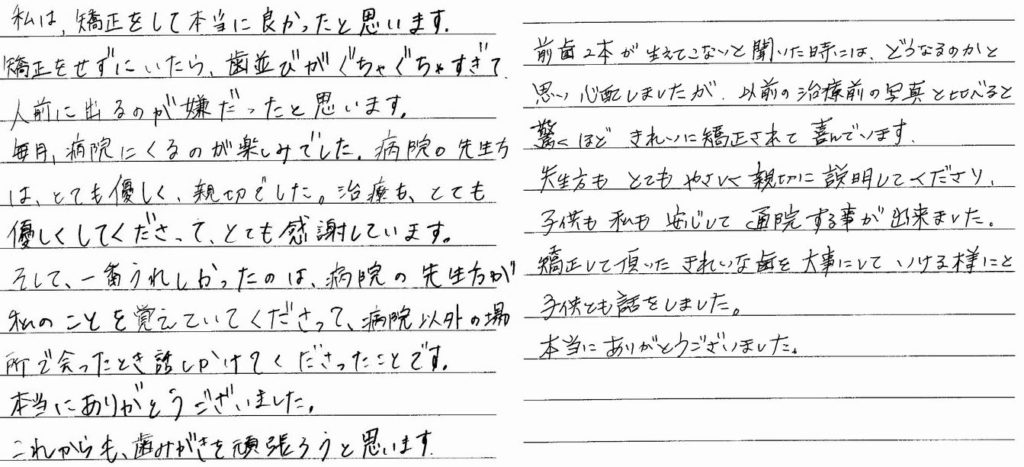 私は、矯正をして本当に良かったと思います。
矯正をせずにいたら、歯並びがぐちゃぐちゃすぎて
人前に出るのが嫌だったと思います。
毎月、病院にくるのが楽しみでした。病院の先生方
は、とても優しく、親切でした。治療も、とても
優しくしてくださって、とても感謝しています。
そして、一番うれしかったのは、病院の先生方が
私のことを覚えていてくださって、病院以外の場
所で会ったとき話しかけてくださったことです。
本当にありがとうございました。
これからも、歯みがきを頑張ろうと思います。
前歯2本が生えてこないと聞いた時には、どうなるのかと
思い心配しましたが、以前の治療前の写真と比べると
驚くほど きれいに矯正されて喜んでいます。
先生方も とても やさしく親切に説明してくださり、
子供も私も 安心して通院する事が出来ました。
矯正して頂いた きれいな歯を大事にしていける様にと
子供とも話をしました。
本当にありがとうございました。